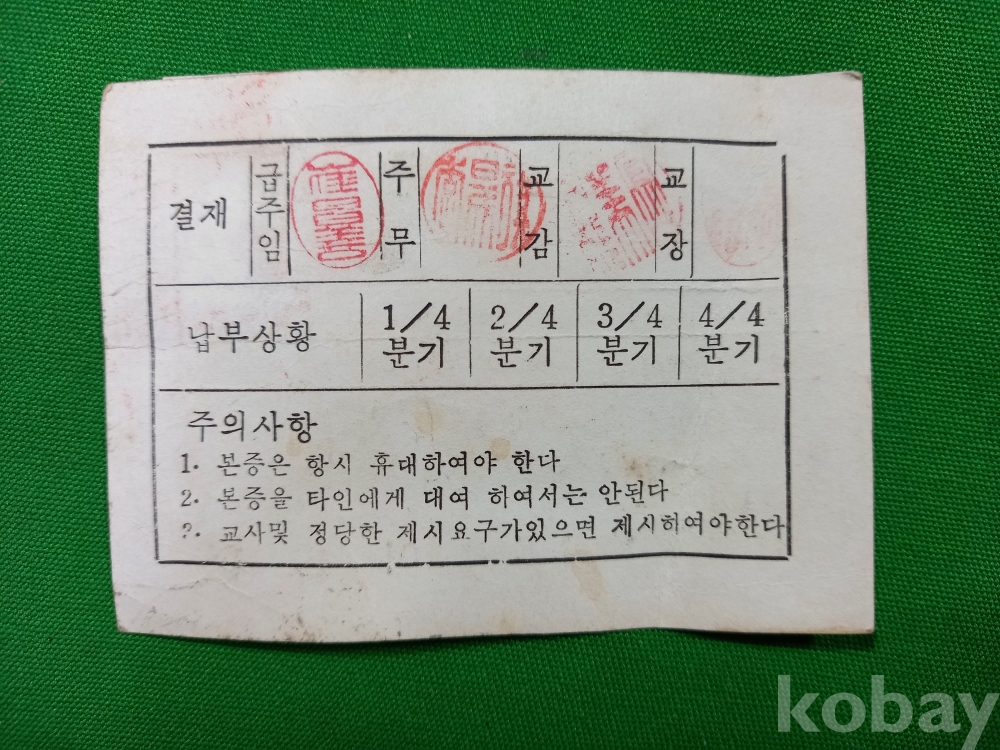 결재 급주임 주무 교감 교장
납부상황 1/4분기 2/4분기 3/4분기 4/4분기
주의사항
1. 본증은 항시 휴대하여야 한다
2. 본증을 타인에게 대여 하여서는 안된다
3. 교사및 정당한 제시요구가있으면 제시하여야한다
kobay